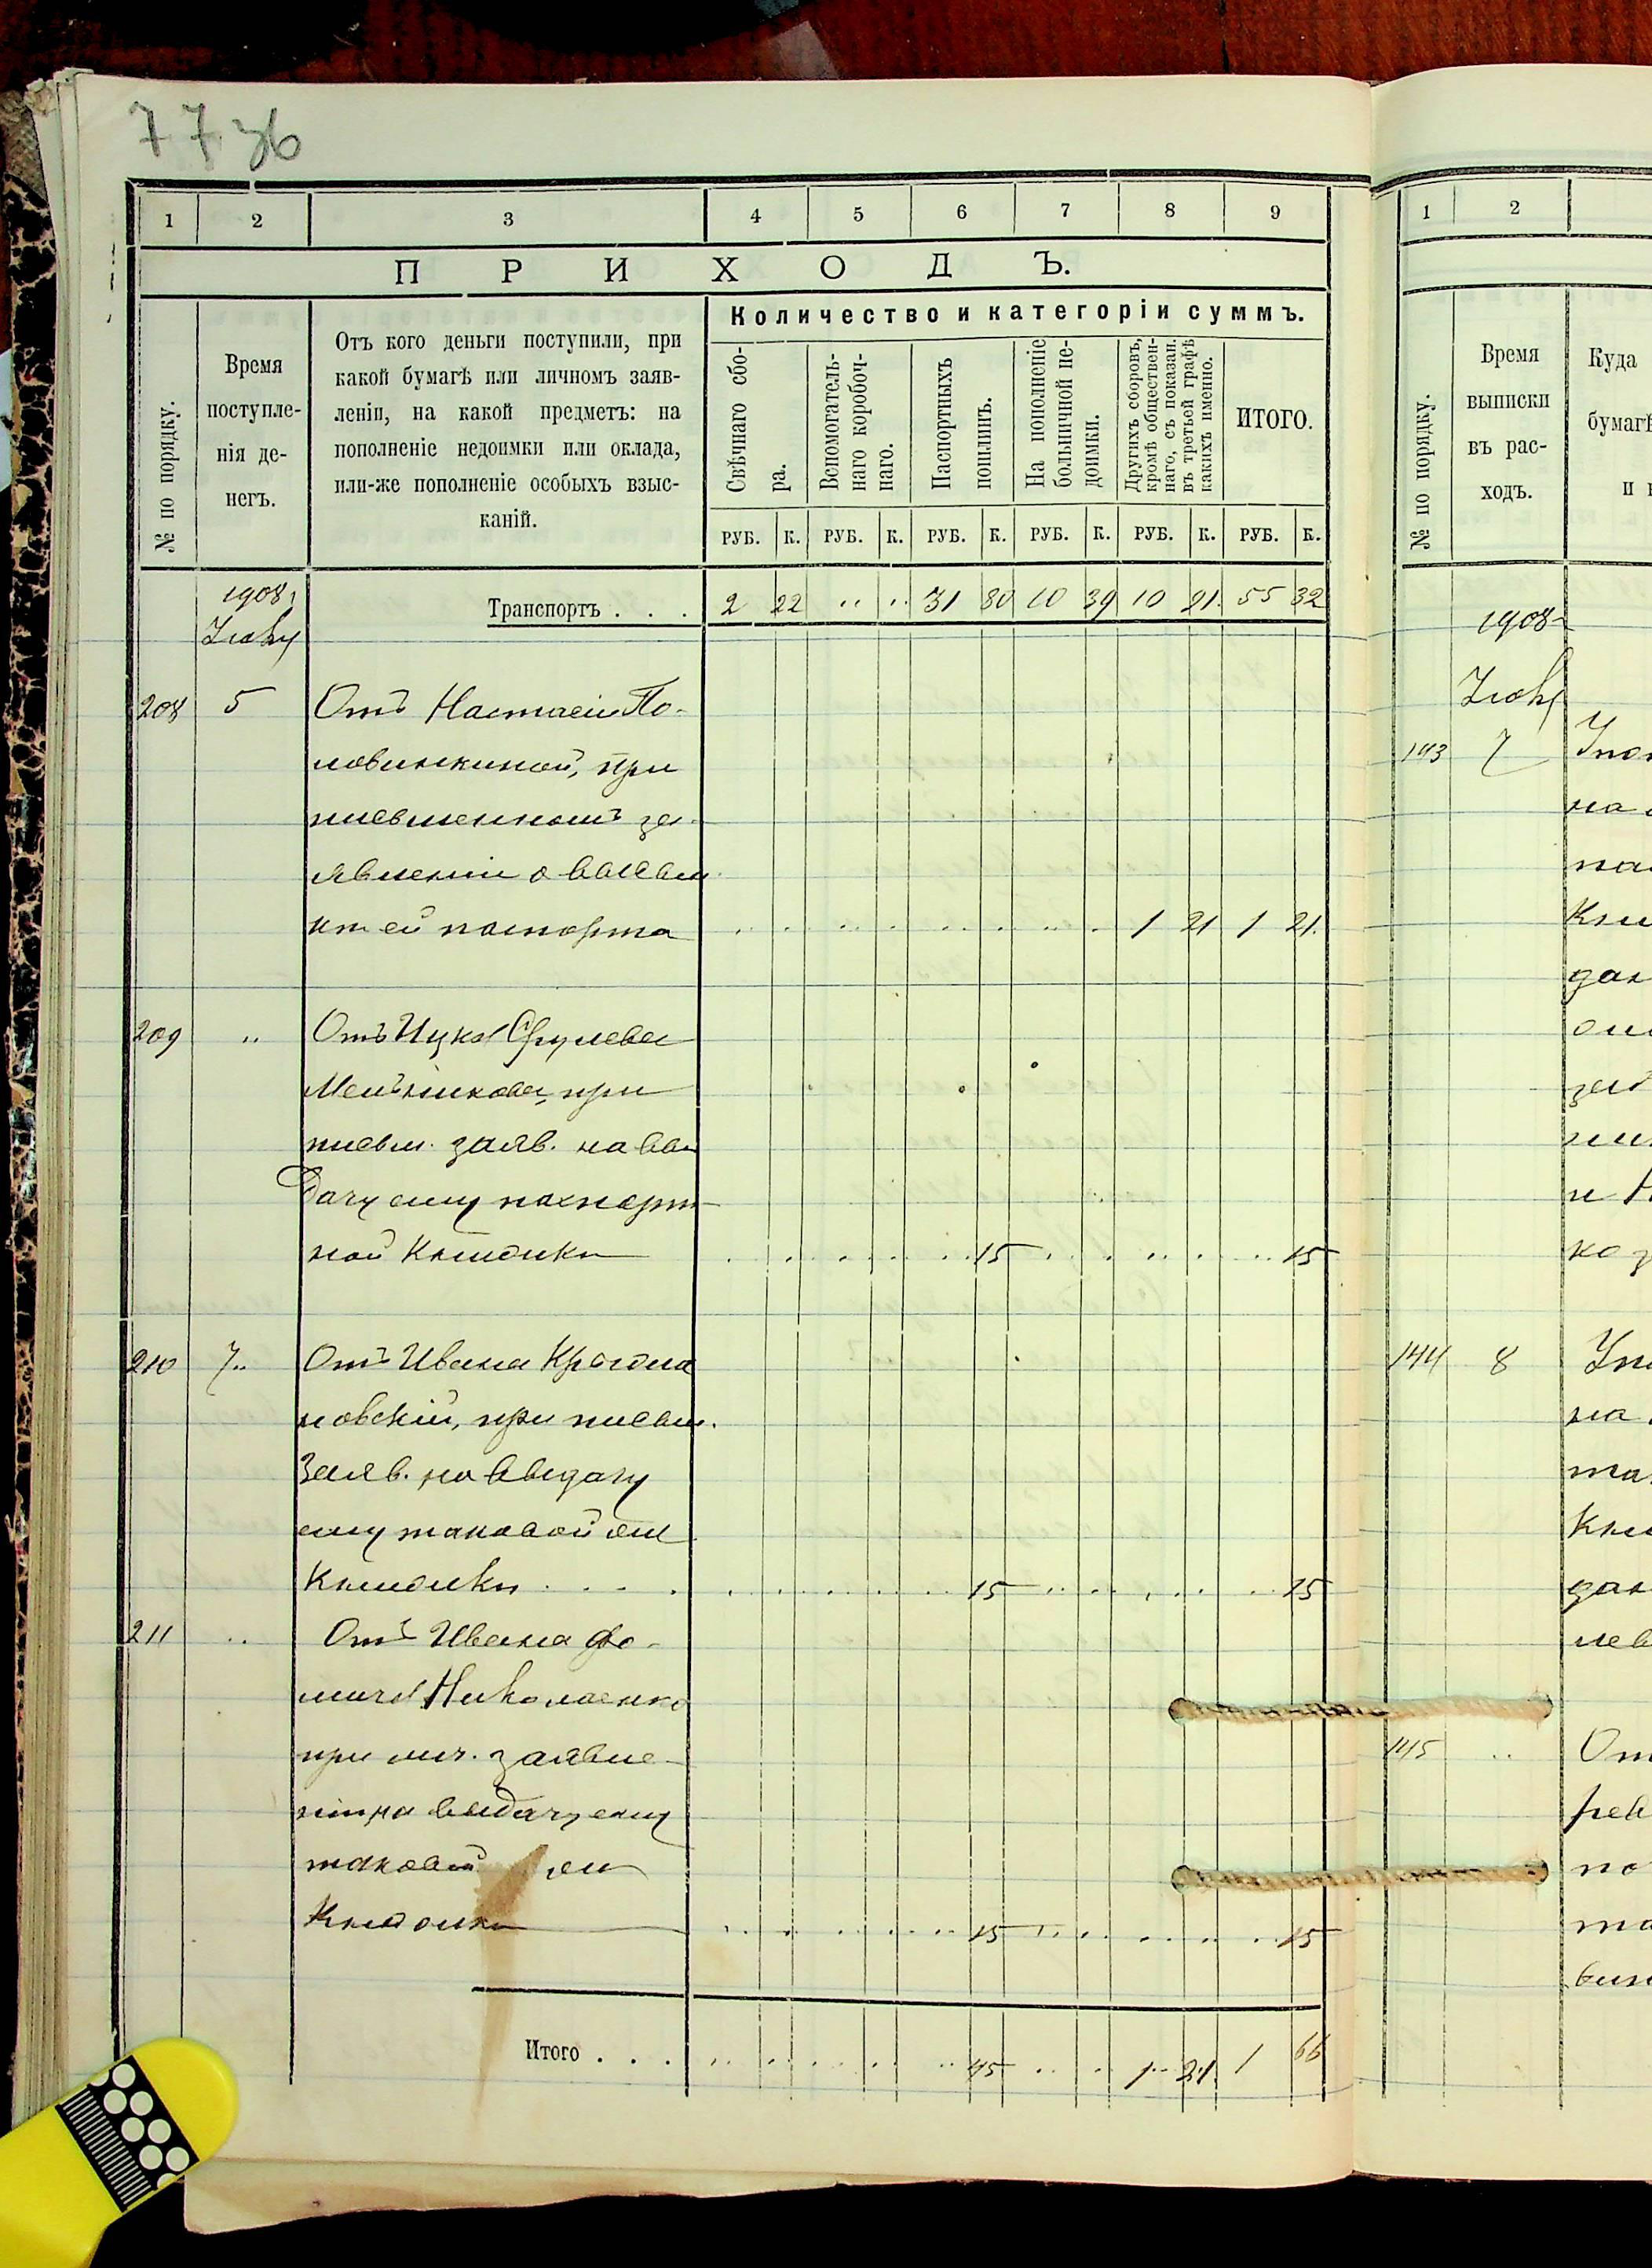 7736
1 2 3 4 5 6 7 8 9
ПРИХОДЪ.
№ по порядку.
Время поступле-
нія де-
негъ.
Отъ кого деньги поступили, при
какой бумагѣ или личномъ заяв-
леніи, на какой предметъ: на
пополненіе недоимки или оклада,
или-же пополненіе особыхъ взыс-
каній.
Количество и категоріи суммъ.
Свѣчнаго сбо-
ра.
Вспомогатель-
наго коробоч-
наго.
Паспортныхъ
пошлинъ.
На пополненіе
больничной не-
доимки.
Другихъ сборовъ,
кромѣ обществен-
наго, съ показан.
въ третьей графѣ
какихъ именно.
ИТОГО.
РУБ. К. РУБ. К. РУБ. К. РУБ. К. РУБ. К. РУБ. К.
1908
Транспортъ . . . 2 22 " " 31 80 10 39 10 91 55 32
Іюль
208 5 Отъ Настасіи По-
ловинкиной, при
письменномъ за-
явленіи о высыл
кѣ ей паспорта 1 21 1 21
209 " Отъ Ицка Срулева
Мельникова, при
письм. заяв. на вы
дачу ему паспорт
ной книжки 15 15
210 7 Отъ Ивана
новскій, при письм.
заяв. на выдачу
ему таковой же
книжки . . . . 15 15
211 " Отъ Ивана Фо-
мича Николаенко
при лич. заявле-
ніи на выдачу ему
таковой же
книжки 15 15
Итого . . . 45 1 21 1 66
1 2
№ по порядку.
Время
выписки
въ рас-
ходъ.
Куда
бумагѣ
и
1908
Іюль
143 7
на
Кни
дан
144 8
на
Кни
дан
145 " От